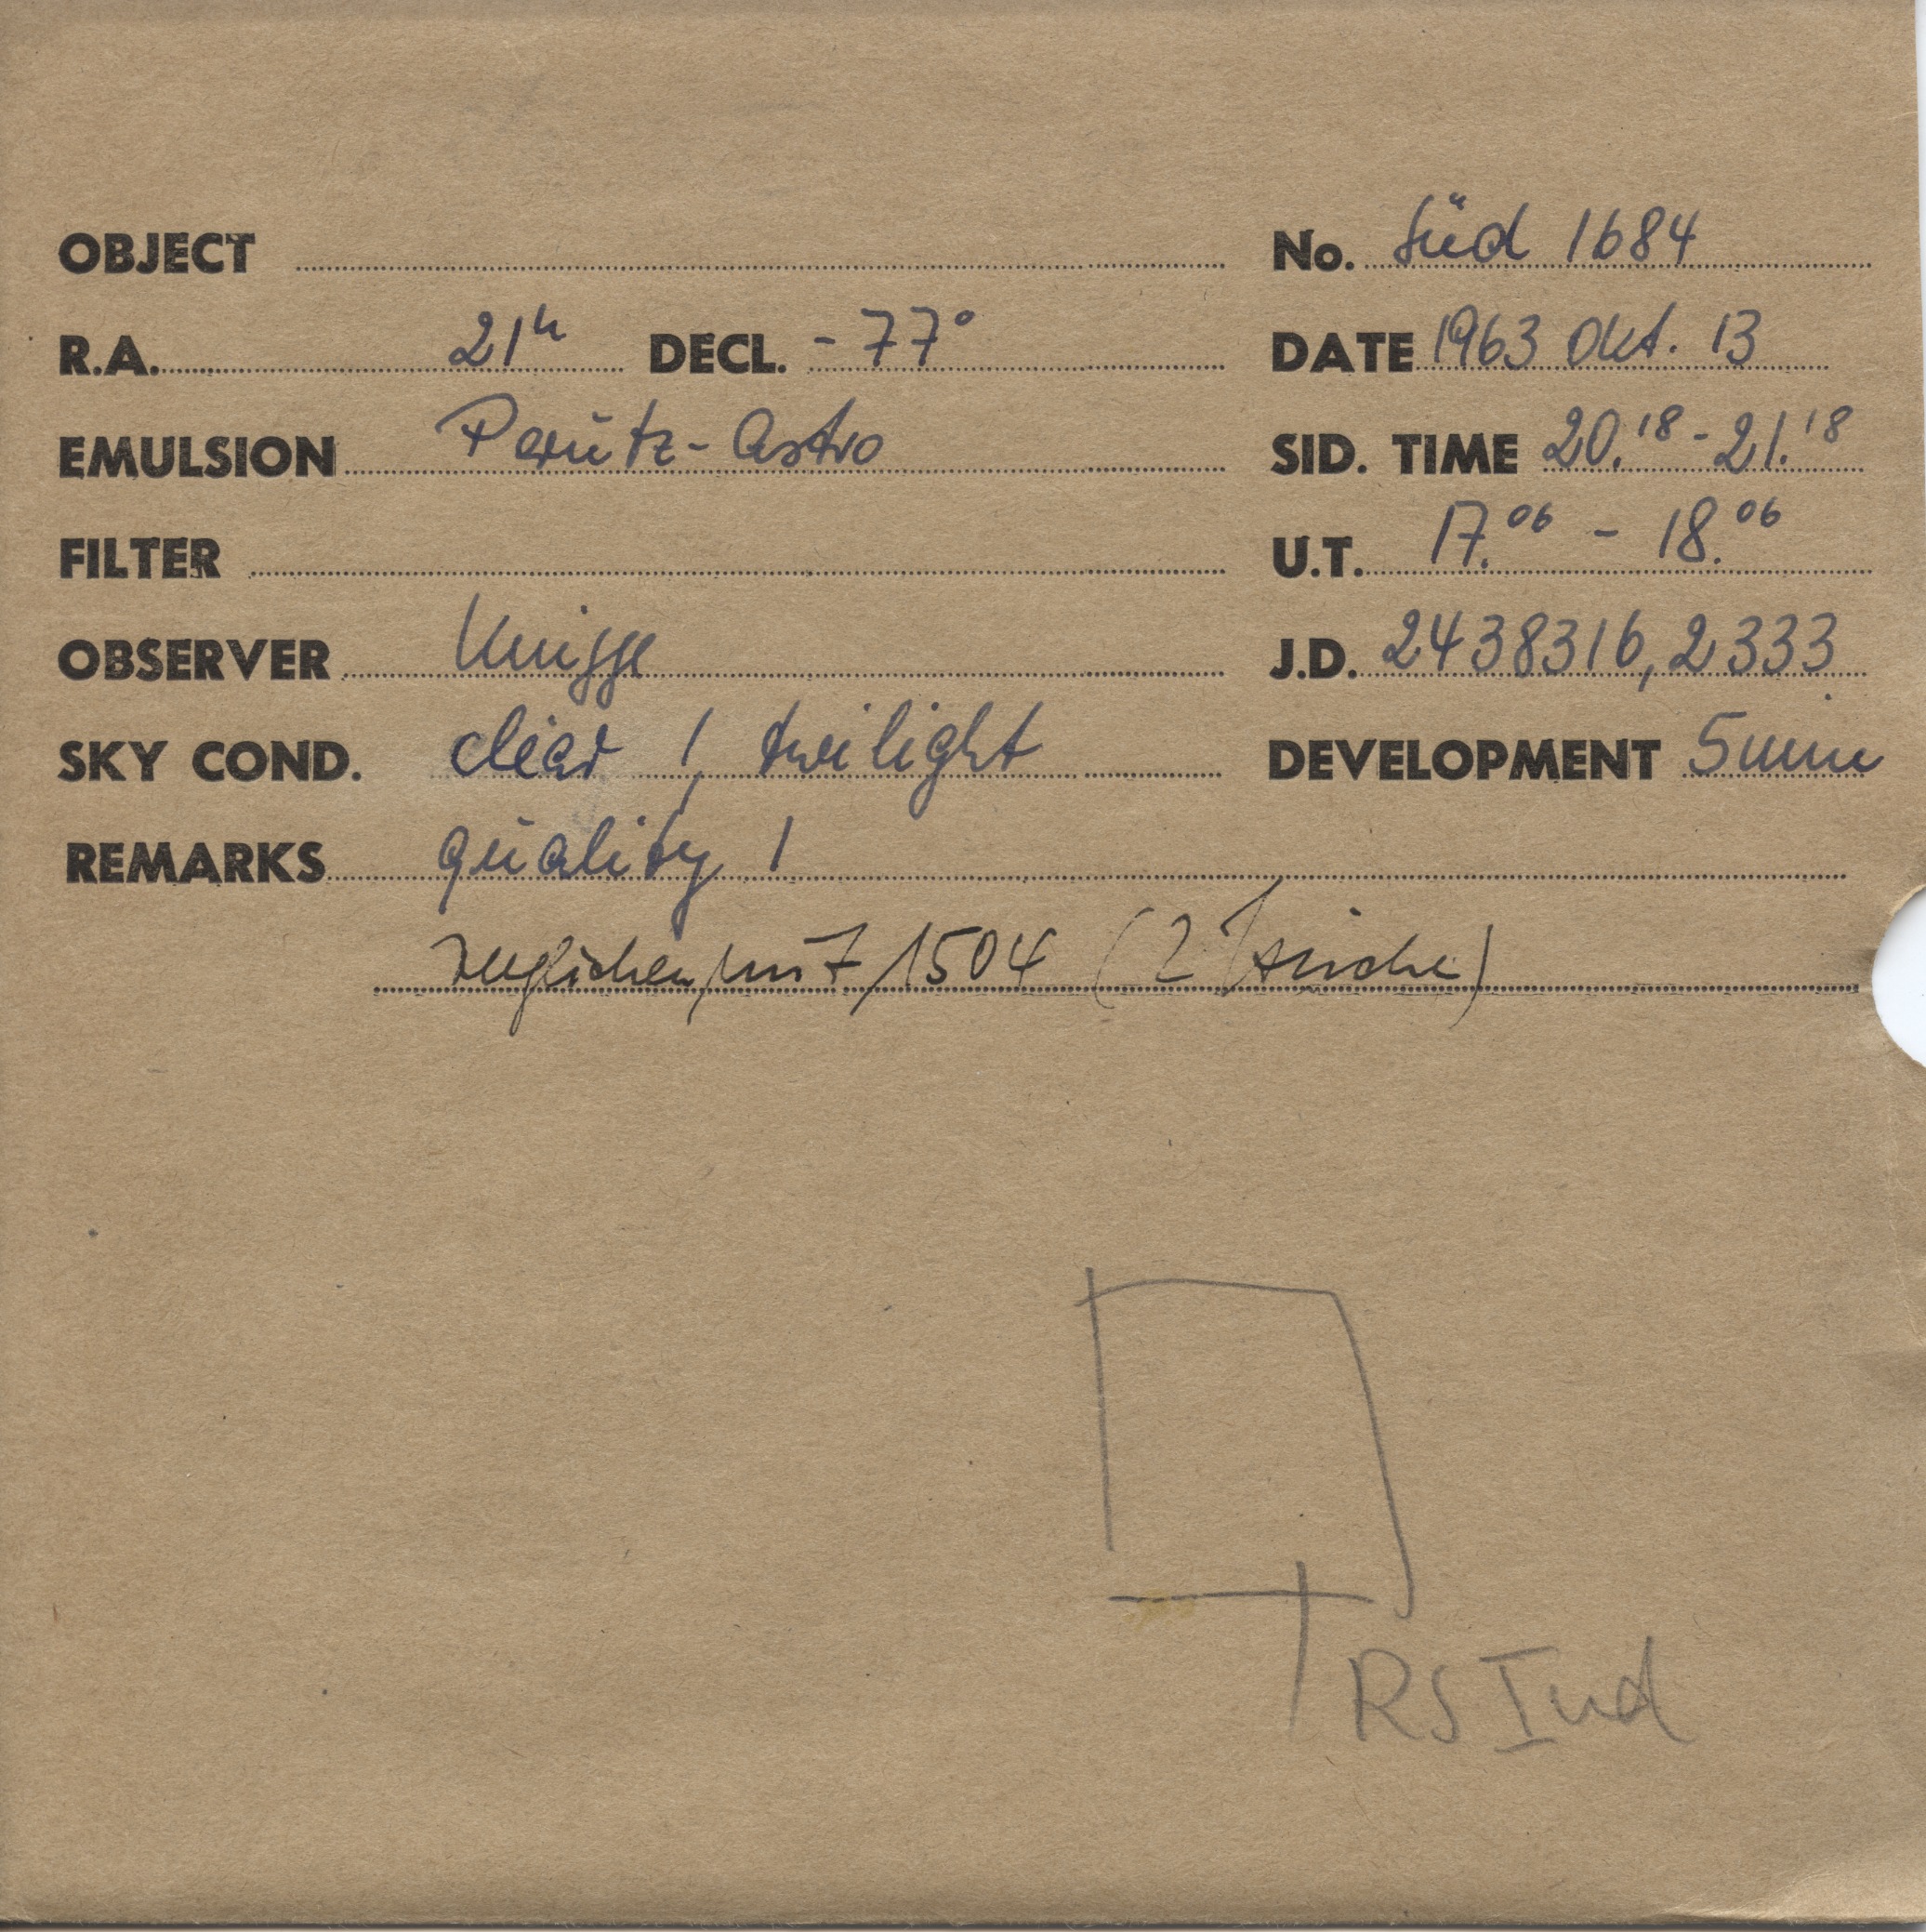 OBJECT No. Süd 1684
R.A. 21h DECL. - 77° DATE 1963 Okt. 13
EMULSION Perutz-Astro SID. TIME 20.18 - 21.18
FILTER U.T. 17.06 - 18.06
OBSERVER Knigge J.D. 2438316,2333
SKY COND. clear 1, twilight DEVELOPMENT 5 min
REMARKS quality 1
verglichen mit 1504 (2 Striche)
RS Ind